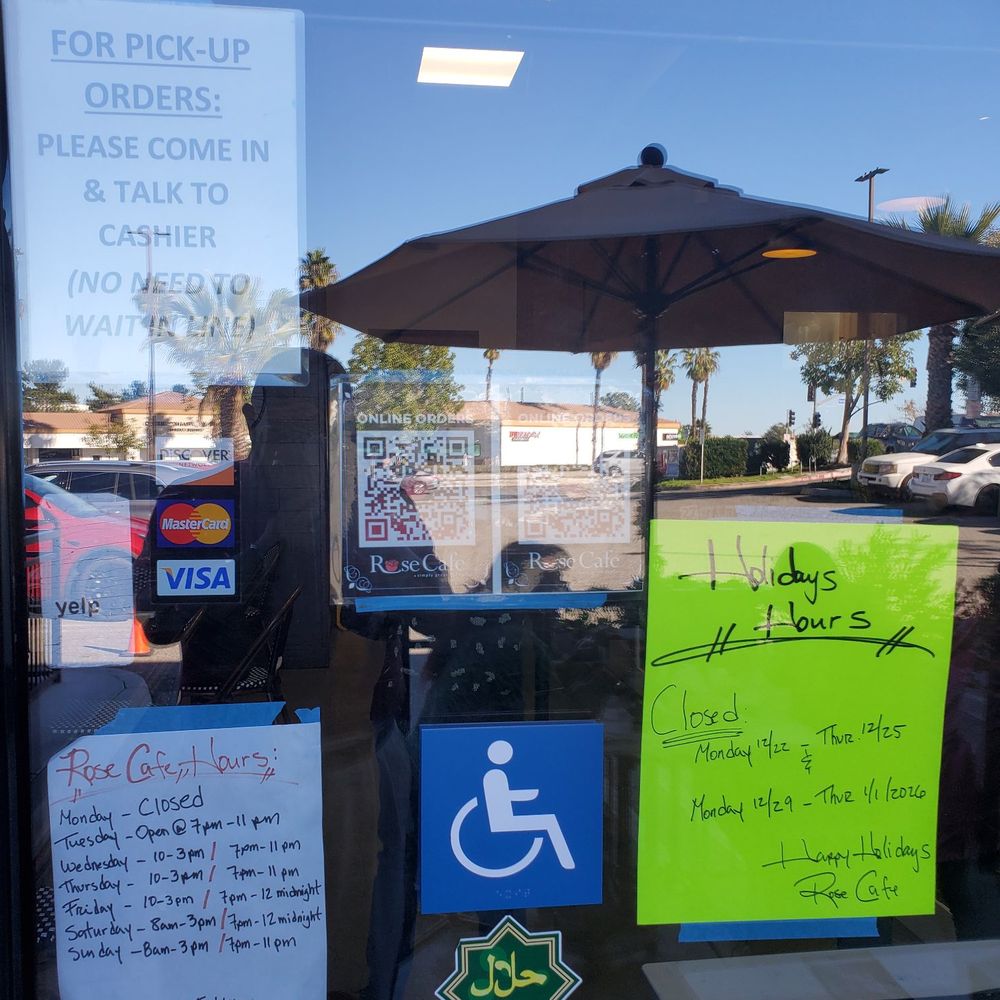 FOR PICK-UP
ORDERS:
PLEASE COME IN
& TALK TO
CASHIER
(NO NEED TO
WAIT IN LINE)
DISCOVER
NETWORK
MasterCard
VISA
yelp
ONLINE ORDERS
Rose Cafe
ONLINE ORDERS
Rose Cafe
Holidays
Hours
Closed:
Monday 12/22 - Thur. 12/25
&
Monday 12/29 - Thur 1/1/2026
Happy Holidays
Rose Cafe
Rose Cafe Hours:
Monday - Closed
Tuesday - Open @ 7pm - 11pm
Wednesday - 10-3pm / 7pm-11pm
Thursday - 10-3pm / 7pm-11pm
Friday - 10-3pm / 7pm-12 midnight
Saturday - 8am-3pm / 7pm-12 midnight
Sunday - 8am-3pm / 7pm-11pm
حلال